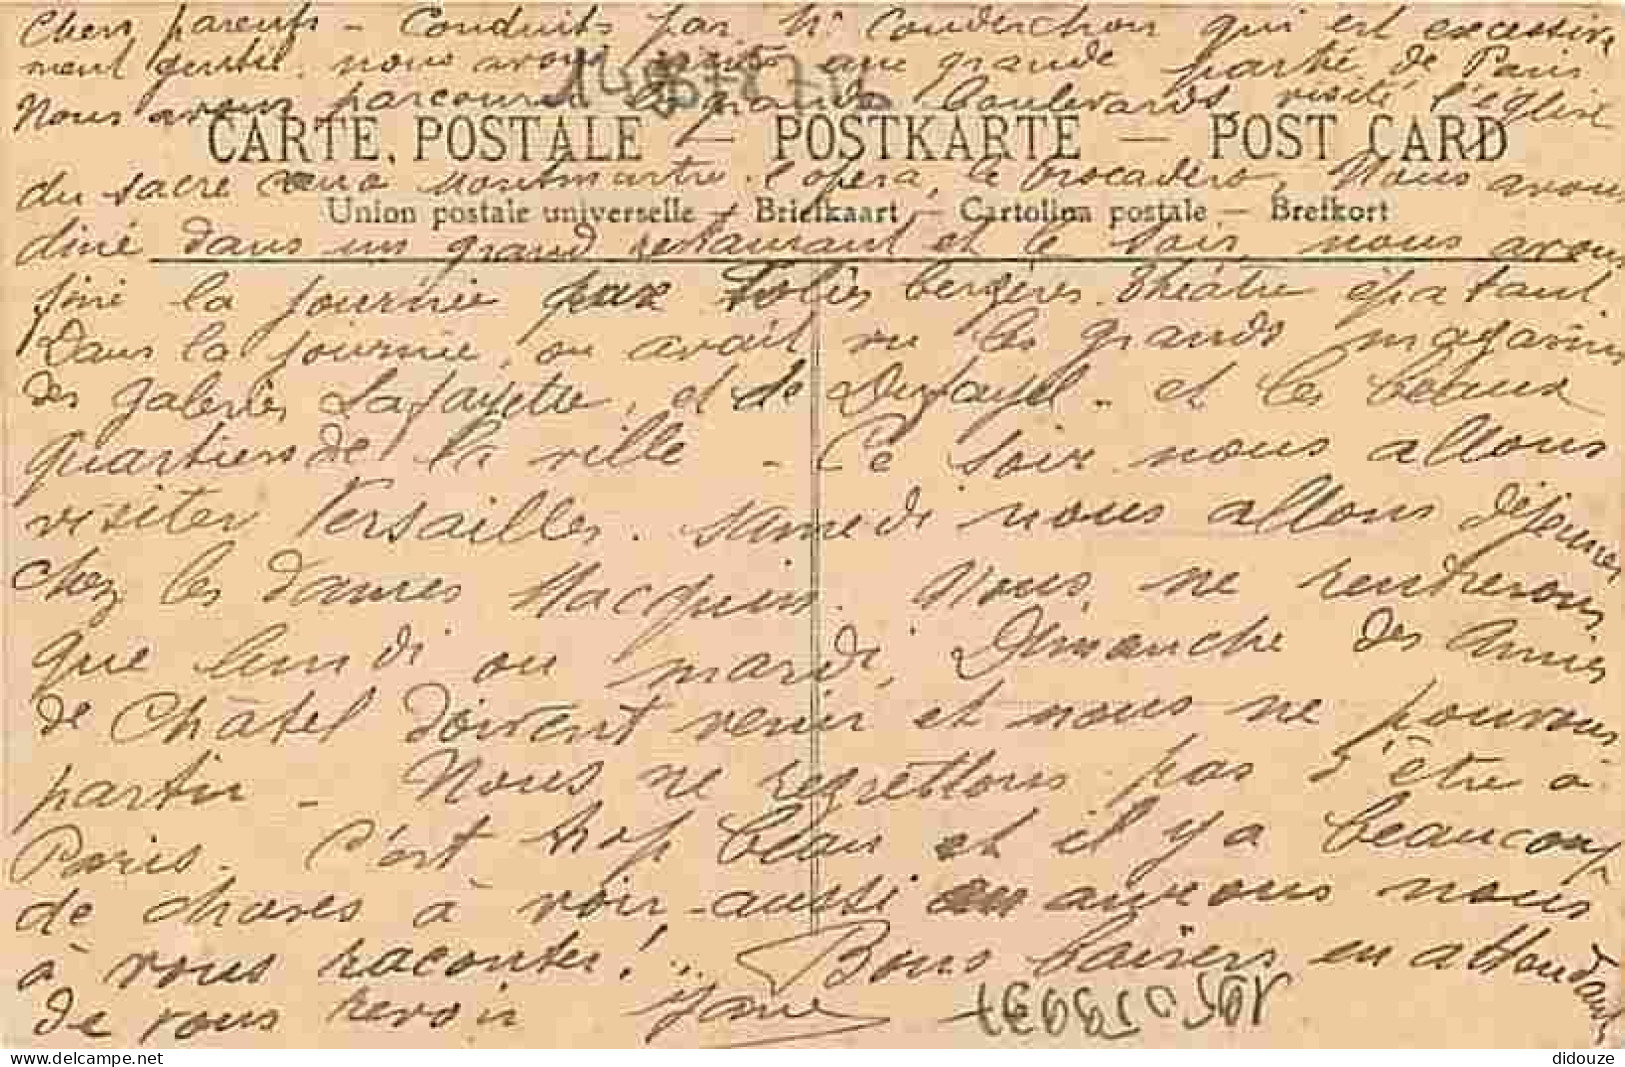 Chers parents - Conduits par Mr Couderchon qui est excessive
ment gentil, nous avons visité une grande partie de Paris
Nous avons parcouru les grands boulevards, visité l'église
CARTE POSTALE — POSTKARTE — POST CARD
du sacré cœur Montmartre, l'opéra, le Trocadéro, Nous avons
Union postale universelle — Briefkaart — Cartolina postale — Brefkort
diné dans un grand restaurant et le soir, nous avons
fini la journée aux Folies bergères. théatre épatant
Dans la journée, on avait vu les grands magasins
des galeries Lafayette, et de Dufayel - et les beaux
quartiers de la ville - Ce soir nous allons
visiter Versailles. Samedi nous allons déjeuner
chez les dames Macquin. Nous ne rentrerons
que lundi ou mardi, Dimanche des amies
de Châtel doivent venir et nous ne pouvons
partir - Nous ne regrettons pas d'être à
Paris. C'est trop beau et il y a beaucoup
de choses à voir - aussi en aurons nous
à vous raconter! .. Bons baisers en attendant
de vous revoir Jane
didouze